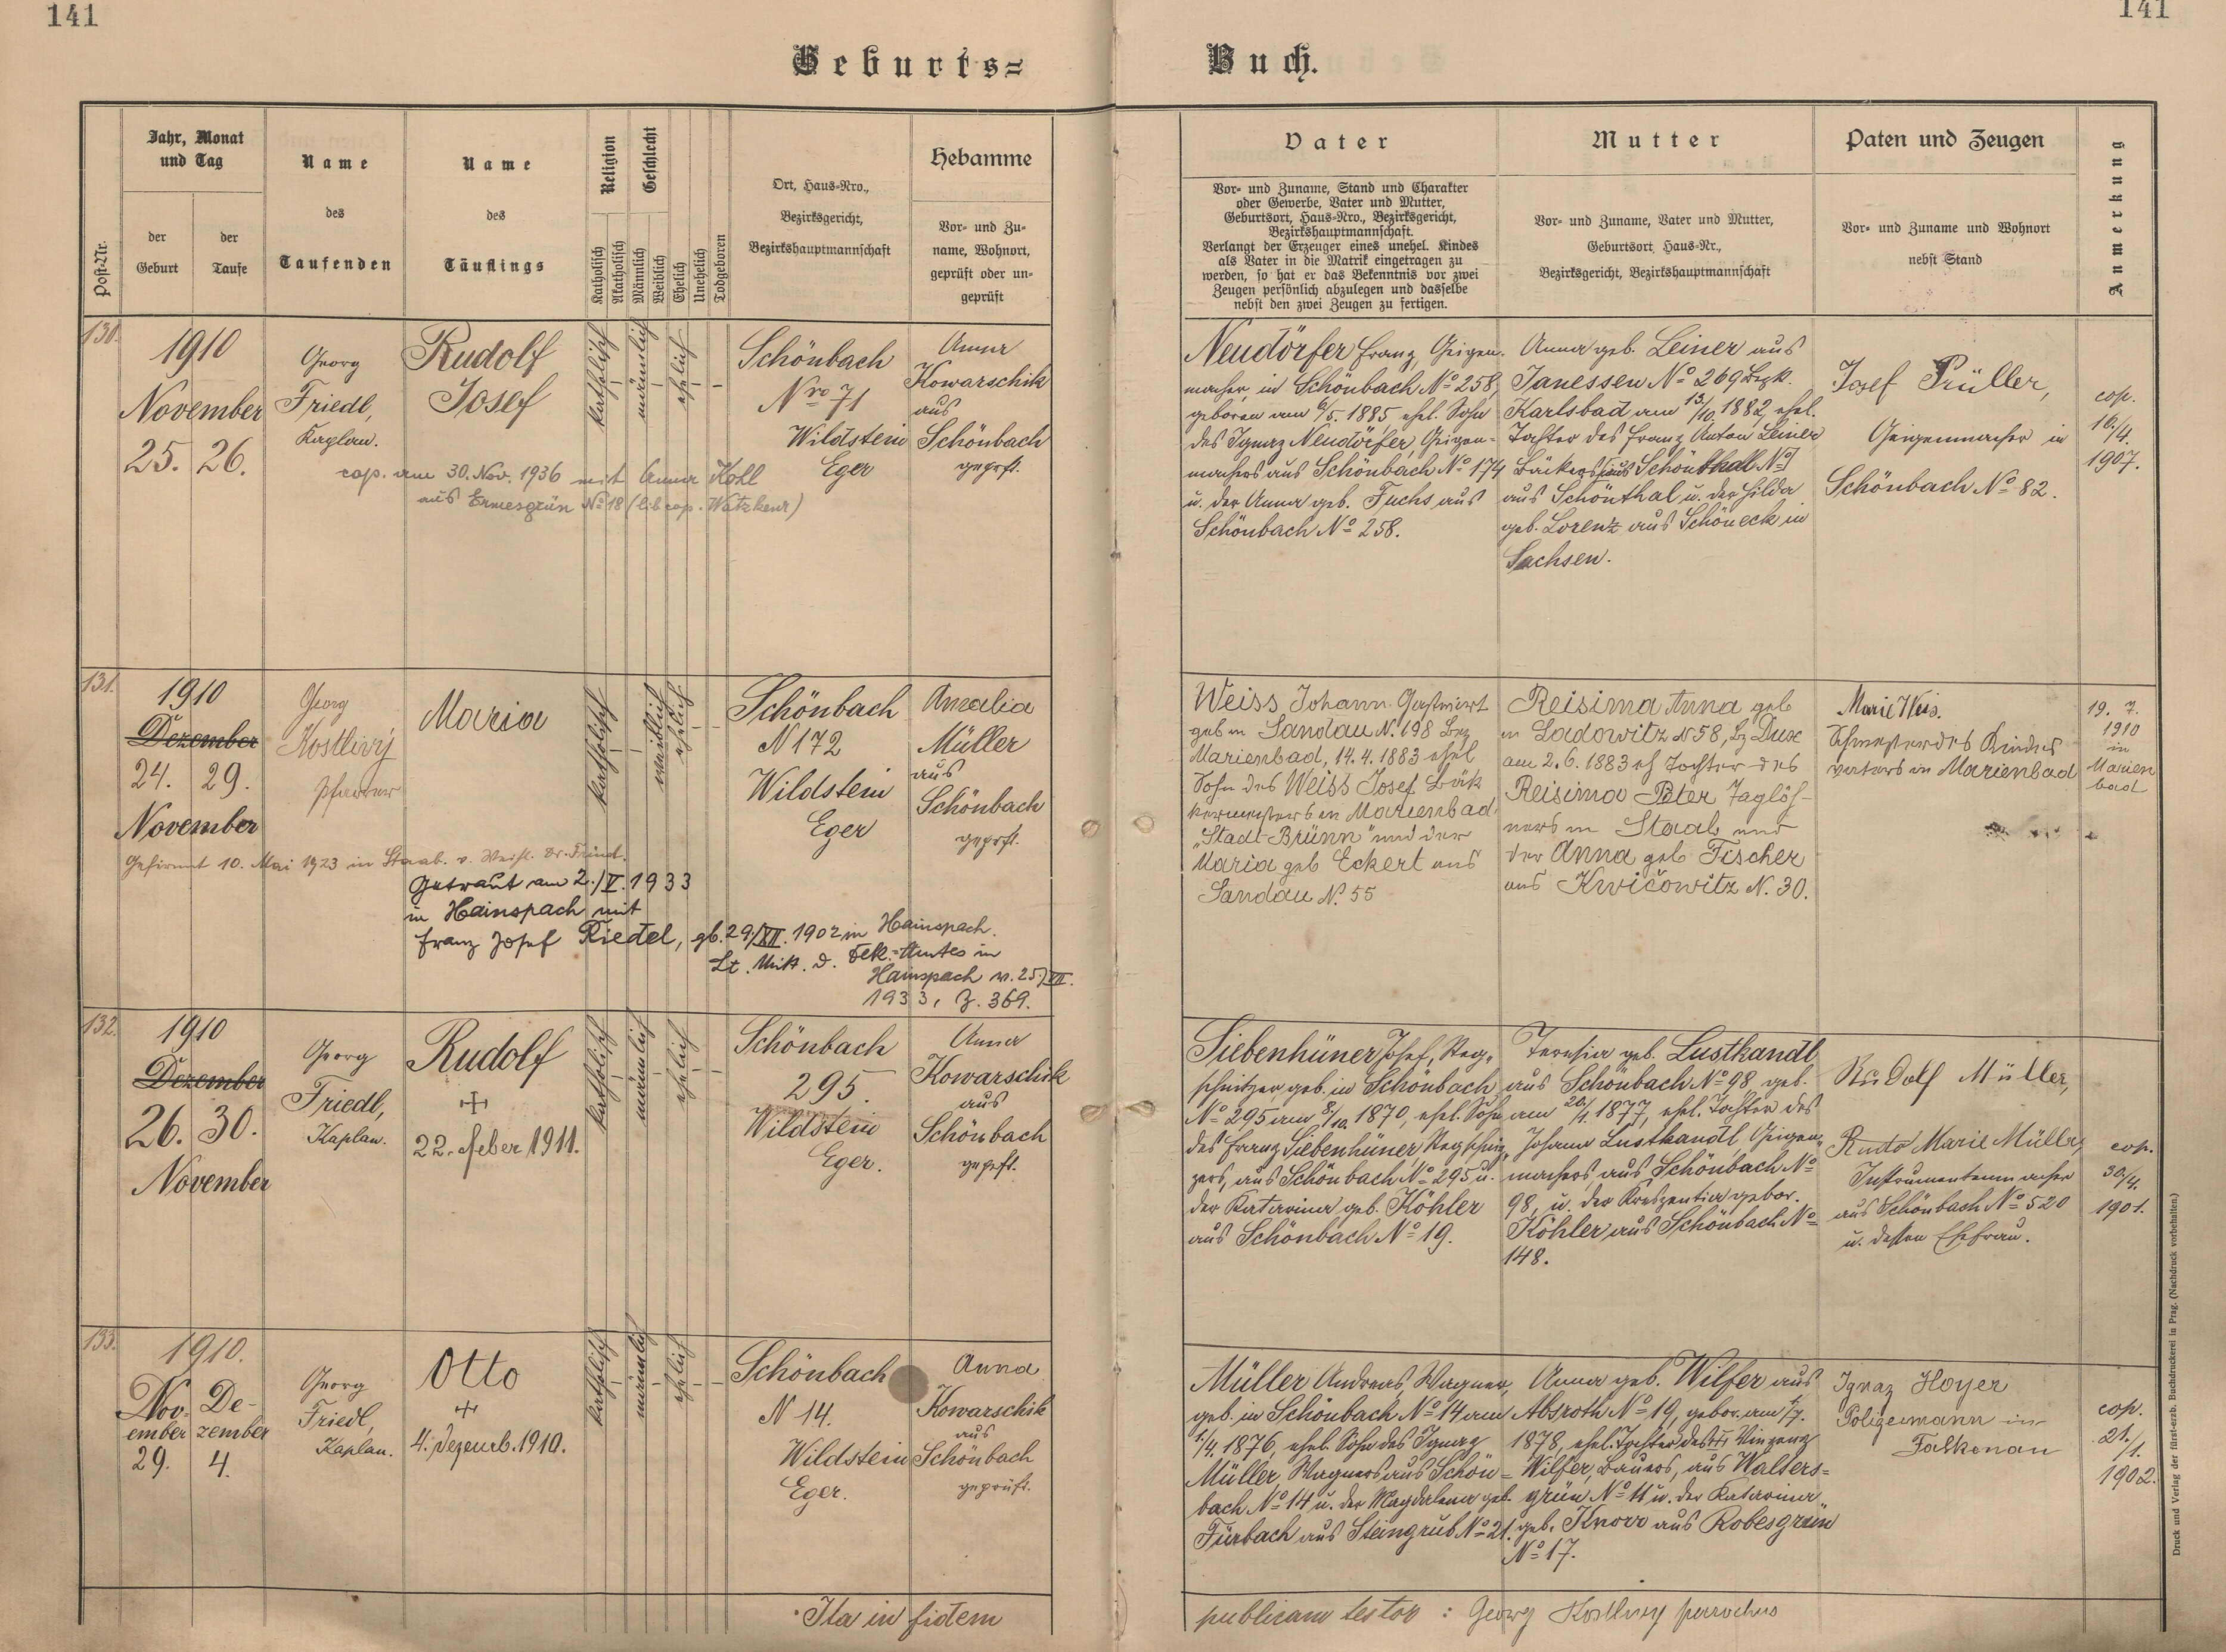 141
141
Geburts=
Buch.
Post-Nr.
Jahr, Monat
und Tag
der
Geburt
der
Taufe
Name
des
Taufenden
Name
des
Täuflings
Religion
Katholisch
Akatholisch
Geschlecht
Männlich
Weiblich
Ehelich
Unehelich
Todgeboren
Ort, Haus-Nro.,
Bezirksgericht,
Bezirkshauptmannschaft
Hebamme
Vor- und Zu-
name, Wohnort,
geprüft oder un-
geprüft
Vater
Vor- und Zuname, Stand und Charakter
oder Gewerbe, Vater und Mutter,
Geburtsort, Haus-Nro., Bezirksgericht,
Bezirkshauptmannschaft.
Verlangt der Erzeuger eines unehel. Kindes
als Vater in die Matrik eingetragen zu
werden, so hat er das Bekenntnis vor zwei
Zeugen persönlich abzulegen und dasselbe
nebst den zwei Zeugen zu fertigen.
Mutter
Vor- und Zuname, Vater und Mutter,
Geburtsort Haus-Nr.,
Bezirksgericht, Bezirkshauptmannschaft
Paten und Zeugen
Vor- und Zuname und Wohnort
nebst Stand
Anmerkung
130.
1910
November
25. 26.
Georg
Friedl,
Kaplan.
Rudolf
Josef
katholisch
männlich
ehelich
Schönbach
Nro 71
Wildstein
Eger
Anna
Kowarschik
aus
Schönbach
geprft.
cop. am 30. Nov. 1936 mit Anna Kohl
aus Ermesgrün No 18 (lib cop. Watzkenr)
Neudörfer Franz, Geigen-
macher, in Schönbach No 258,
geboren am 6/5. 1885, ehel. Sohn
des Ignaz Neudörfer, Geigen-
machers aus Schönbach No 174
u. der Anna geb. Fuchs aus
Schönbach No 258.
Anna geb. Leiner aus
Janessen No 269 Bezk.
Karlsbad am 13/10. 1882, ehel.
Tochter des Franz Anton Leiner
Bäckers aus Schönthal No 1
aus Schönthal u. der Hilda
geb. Lorenz aus Schöneck in
Sachsen.
Josef Prüller,
Geigenmacher in
Schönbach No 82.
cop.
16/4.
1907.
131.
1910
Dezember
24. 29.
November
Georg
Kostlivý
Pfarrer
Maria
katholisch
weiblich
ehelich
Schönbach
N 172
Wildstein
Eger
Amalia
Müller
aus
Schönbach
geprft.
Gefirmt 10. Mai 1923 in Staab. v. Weihb. Dr. Frind.
Getraut am 2./V. 1933
in Hainspach mit
Franz Josef Riedel, gb. 29./XII. 1902 in Hainspach.
Lt. Mitt. d. Dek.-Amtes in
Hainspach v. 25./VII.
1933, Z. 369.
Weiss Johann Gastwirt
geb in Sandau N. 198 Bez
Marienbad, 14. 4. 1883 ehel
Sohn des Weiss Josef Bäk
kermeisters in Marienbad
"Stadt-Brünn" und der
Maria geb Eckert aus
Sandau N. 55
Reisima Anna geb
in Ladowitz N 58, Bz Dux
am 2. 6. 1883 eh Tochter des
Reisima Peter Taglöh-
ners in Staab und
der Anna geb Fischer
aus Kwičowitz N. 30.
Marie Weis.
Schwester des Kindes
vaters in Marienbad
19. 7.
1910
in
Marien
bad
132.
1910
Dezember
26. 30.
November
Georg
Friedl,
Kaplan.
Rudolf
+
22. Feber 1911.
katholisch
männlich
ehelich
Schönbach
295.
Wildstein
Eger.
Anna
Kowarschik
aus
Schönbach
geprft.
Siebenhüner Josef, Steg-
schnitzer geb. in Schönbach
No 295 am 8/10. 1870, ehel. Sohn
des Franz Siebenhüner, Stegschnit-
zers, aus Schönbach No 295 u.
der Katarina geb. Köhler
aus Schönbach No 19.
Teresia geb. Lustkandl
aus Schönbach No 98, geb.
am 20./1. 1877, ehel. Tochter des
Johann Lustkandl, Geigen-
machers, aus Schönbach No
98, u. der Kreszentia gebor.
Köhler aus Schönbach No
148.
Rudolf Müller,
Marie Müller,
Instrumentenmacher
aus Schönbach No 520
u. dessen Ehefrau.
cop.
30/4.
1901.
133.
1910.
Nov- De-
ember zember
29. 4.
Georg
Friedl,
Kaplan.
Otto
+
4. Dezemb. 1910.
katholisch
männlich
ehelich
Schönbach
N 14.
Wildstein
Eger.
Anna
Kowarschik
aus
Schönbach
geprüft.
Müller Andreas, Wagner,
geb. in Schönbach No 14 am
1/4. 1876, ehel. Sohn des Ignaz
Müller, Wagners aus Schön-
bach No 14 u. der Magdalena geb.
Fürbach aus Steingrub No 21.
Anna geb. Wilfer aus
Absroth No 19, gebor. am 1/7.
1878, ehel. Tochter des + Vinzenz
Wilfer, Bauers, aus Walters-
grün No 11 u. der Katarina
geb. Knorr aus Robesgrün
No 17.
Ignaz Hoyer
Polizeimann in
Falkenau
cop.
21./1.
1902.
Ita in fidem
publicam testor : Georg Kostlivý parochus
Druck und Verlag der fürst-erzb. Buchdruckerei in Prag. (Nachdruck vorbehalten.)